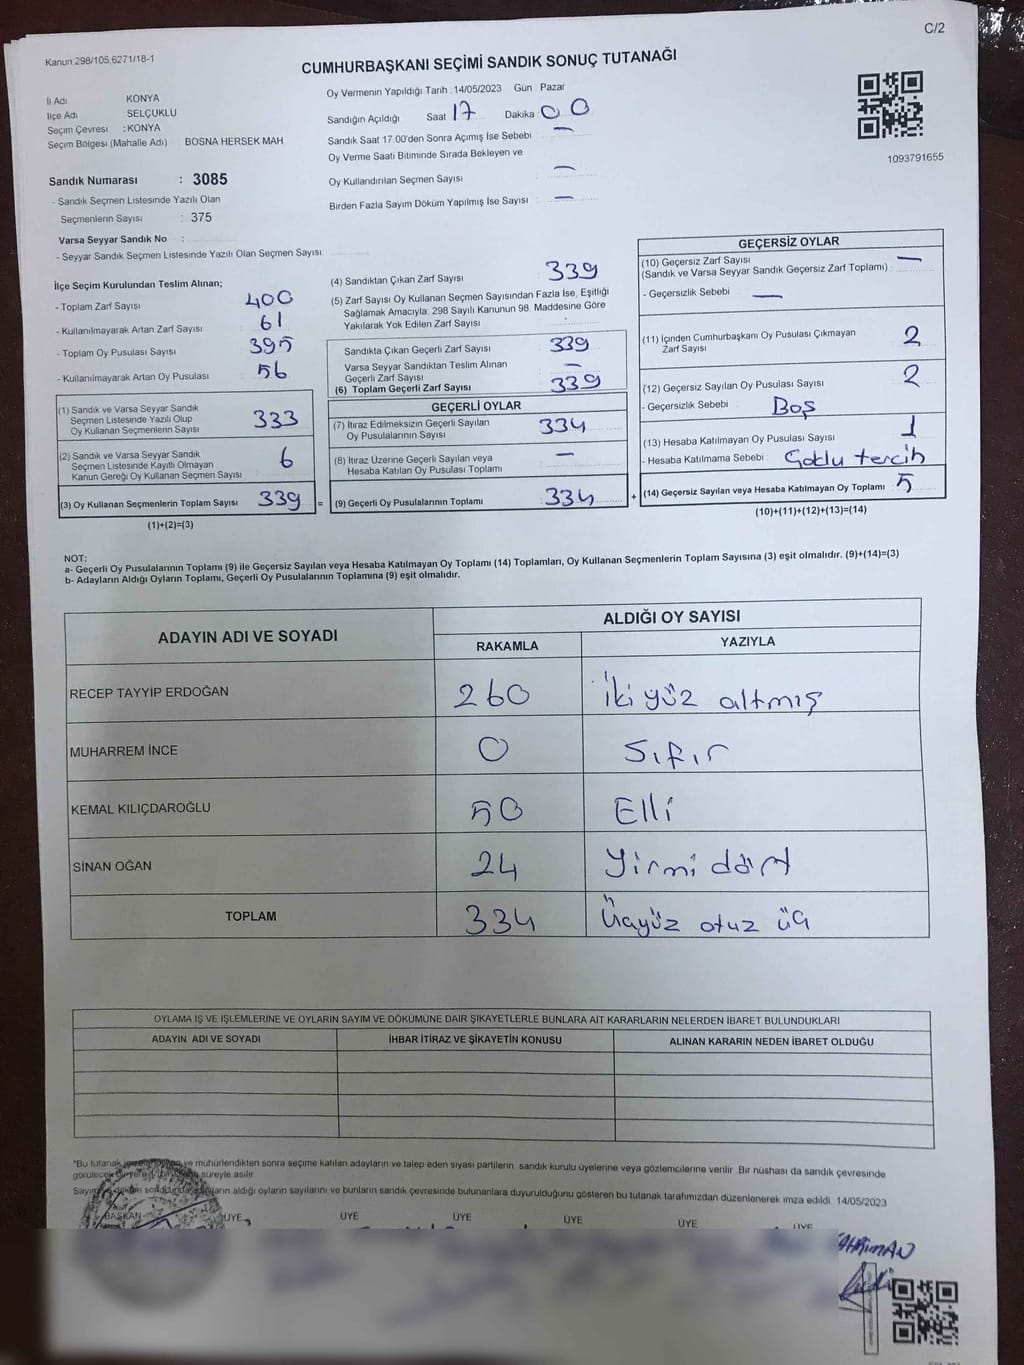 C/2
Kanun.298/105,6271/18-1
CUMHURBAŞKANI SEÇİMİ SANDIK SONUÇ TUTANAĞI
İl Adı KONYA
İlçe Adı SELÇUKLU
Seçim Çevresi : KONYA
Seçim Bölgesi (Mahalle Adı) BOSNA HERSEK MAH
Sandık Numarası : 3085
- Sandık Seçmen Listesinde Yazılı Olan
Seçmenlerin Sayısı : 375
Varsa Seyyar Sandık No :
- Seyyar Sandık Seçmen Listesinde Yazılı Olan Seçmen Sayısı
Oy Vermenin Yapıldığı Tarih : 14/05/2023 Gün : Pazar
Sandığın Açıldığı Saat 17 Dakika 00
Sandık Saat 17.00'den Sonra Açımış İse Sebebi —
Oy Verme Saati Bitiminde Sırada Bekleyen ve
Oy Kullandırılan Seçmen Sayısı —
Birden Fazla Sayım Döküm Yapılmış İse Sayısı —
1093791655
İlçe Seçim Kurulundan Teslim Alınan;
- Toplam Zarf Sayısı 400
- Kullanılmayarak Artan Zarf Sayısı 61
- Toplam Oy Pusulası Sayısı 395
- Kullanılmayarak Artan Oy Pusulası 56
(1) Sandık ve Varsa Seyyar Sandık
Seçmen Listesinde Yazılı Olup
Oy Kullanan Seçmenlerin Sayısı 333
(2) Sandık ve Varsa Seyyar Sandık
Seçmen Listesinde Kayıtlı Olmayan
Kanun Gereği Oy Kullanan Seçmen Sayısı 6
(3) Oy Kullanan Seçmenlerin Toplam Sayısı 339 =
(1)+(2)=(3)
(4) Sandıktan Çıkan Zarf Sayısı 339
(5) Zarf Sayısı Oy Kullanan Seçmen Sayısından Fazla İse, Eşitliği
Sağlamak Amacıyla; 298 Sayılı Kanunun 98. Maddesine Göre
Yakılarak Yok Edilen Zarf Sayısı :
Sandıkta Çıkan Geçerli Zarf Sayısı 339
Varsa Seyyar Sandıktan Teslim Alınan
Geçerli Zarf Sayısı —
(6) Toplam Geçerli Zarf Sayısı 339
GEÇERLİ OYLAR
(7) İtiraz Edilmeksizin Geçerli Sayılan
Oy Pusulalarının Sayısı 334
(8) İtiraz Üzerine Geçerli Sayılan veya
Hesaba Katılan Oy Pusulası Toplamı —
(9) Geçerli Oy Pusulalarının Toplamı : 334 +
GEÇERSİZ OYLAR
(10) Geçersiz Zarf Sayısı —
(Sandık ve Varsa Seyyar Sandık Geçersiz Zarf Toplamı) :
- Geçersizlik Sebebi : —
(11) İçinden Cumhurbaşkanı Oy Pusulası Çıkmayan
Zarf Sayısı 2
(12) Geçersiz Sayılan Oy Pusulası Sayısı 2
- Geçersizlik Sebebi : Boş
(13) Hesaba Katılmayan Oy Pusulası Sayısı 1
- Hesaba Katılmama Sebebi : Çoklu tercih
(14) Geçersiz Sayılan veya Hesaba Katılmayan Oy Toplamı 5
(10)+(11)+(12)+(13)=(14)
NOT:
a- Geçerli Oy Pusulalarının Toplamı (9) ile Geçersiz Sayılan veya Hesaba Katılmayan Oy Toplamı (14) Toplamları, Oy Kullanan Seçmenlerin Toplam Sayısına (3) eşit olmalıdır. (9)+(14)=(3)
b- Adayların Aldığı Oyların Toplamı, Geçerli Oy Pusulalarının Toplamına (9) eşit olmalıdır.
ADAYIN ADI VE SOYADI ALDIĞI OY SAYISI
RAKAMLA YAZIYLA
RECEP TAYYİP ERDOĞAN 260 İki yüz altmış
MUHARREM İNCE 0 Sıfır
KEMAL KILIÇDAROĞLU 50 Elli
SİNAN OĞAN 24 Yirmi dört
TOPLAM 334 Üçyüz otuz üç
OYLAMA İŞ VE İŞLEMLERİNE VE OYLARIN SAYIM VE DÖKÜMÜNE DAİR ŞİKAYETLERLE BUNLARA AİT KARARLARIN NELERDEN İBARET BULUNDUKLARI
ADAYIN ADI VE SOYADI İHBAR İTİRAZ VE ŞİKAYETİN KONUSU ALINAN KARARIN NEDEN İBARET OLDUĞU
*Bu tutanak ve mühürlendikten sonra seçime katılan adayların ve talep eden siyasi partilerin sandık kurulu üyelerine veya gözlemcilerine verilir. Bir nüshası da sandık çevresinde
görülecek bir yere süreyle asılır
aldığı oyların sayılarını ve bunların sandık çevresinde bulunanlara duyurulduğunu gösteren bu tutanak tarafımızdan düzenlenerek imza edildi. 14/05/2023
BAŞKAN ÜYE ÜYE ÜYE ÜYE ÜYE ÜYE